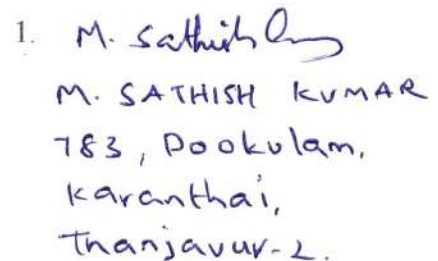 1. M. Sathish
M. SATHISH KUMAR
783, Pookulam,
Karanthai,
Thanjavur-2.